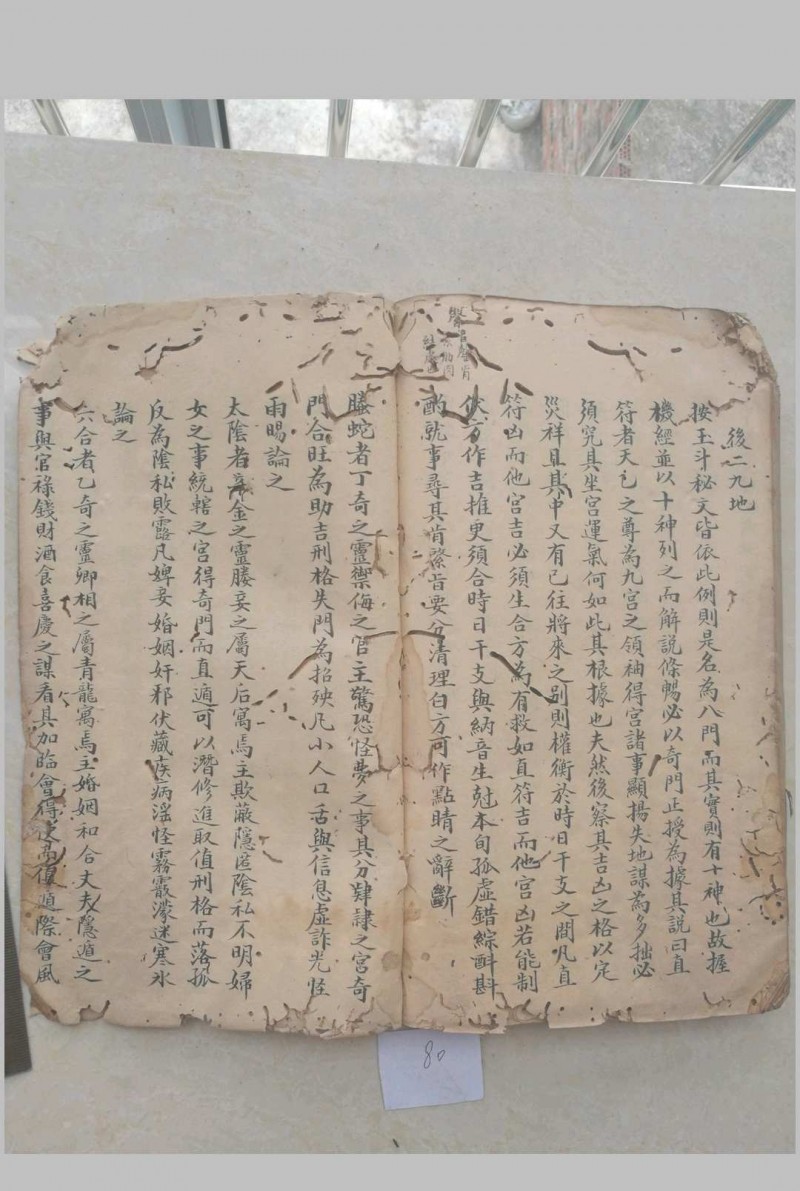 後二九地
按玉斗秘文皆依此例則是名為八門而其實則有十神也故握
機經並以十神列之而解說條暢必以奇門正授為據其說曰直
符者天乙之尊為九宮之領袖得宮諸事顯揚失地謀為多拙必
須究其坐宮運氣何如此其根據也夫然後察其吉凶之格以定
災祥且其中又有已往將來之别則權衡於時日干支之間凡直
符凶而他宮吉必須生合方為有救如直符吉而他宮凶若能制
伏方作吉推更須合時日干支與納音生尅本旬孤虛錯綜斟斟
酌就事尋其肯綮肯要分清理白方可作點睛之辭斷
螣蛇者丁奇之靈禦侮之官主驚恐怪夢之事其分肆隸之宮奇
門合旺為助吉刑格失門為招殃凡小人口舌與信息虛詐光怪
雨暘論之
太陰者辛金之靈媵妾之屬天后寓焉主欺蔽隱匿陰私不明婦
女之事統轄之宮得奇門而直適可以潛修進取值刑格而落孤
反為陰私敗露凡婢妾婚姻奸邪伏藏疾病淫怪霧霰濛迷寒氷
論之
六合者乙奇之靈卿相之屬青龍寓焉主婚姻和合丈夫隱遁之
事與官祿錢財酒食喜慶之謀看其加臨會得使高復遁際會風
80